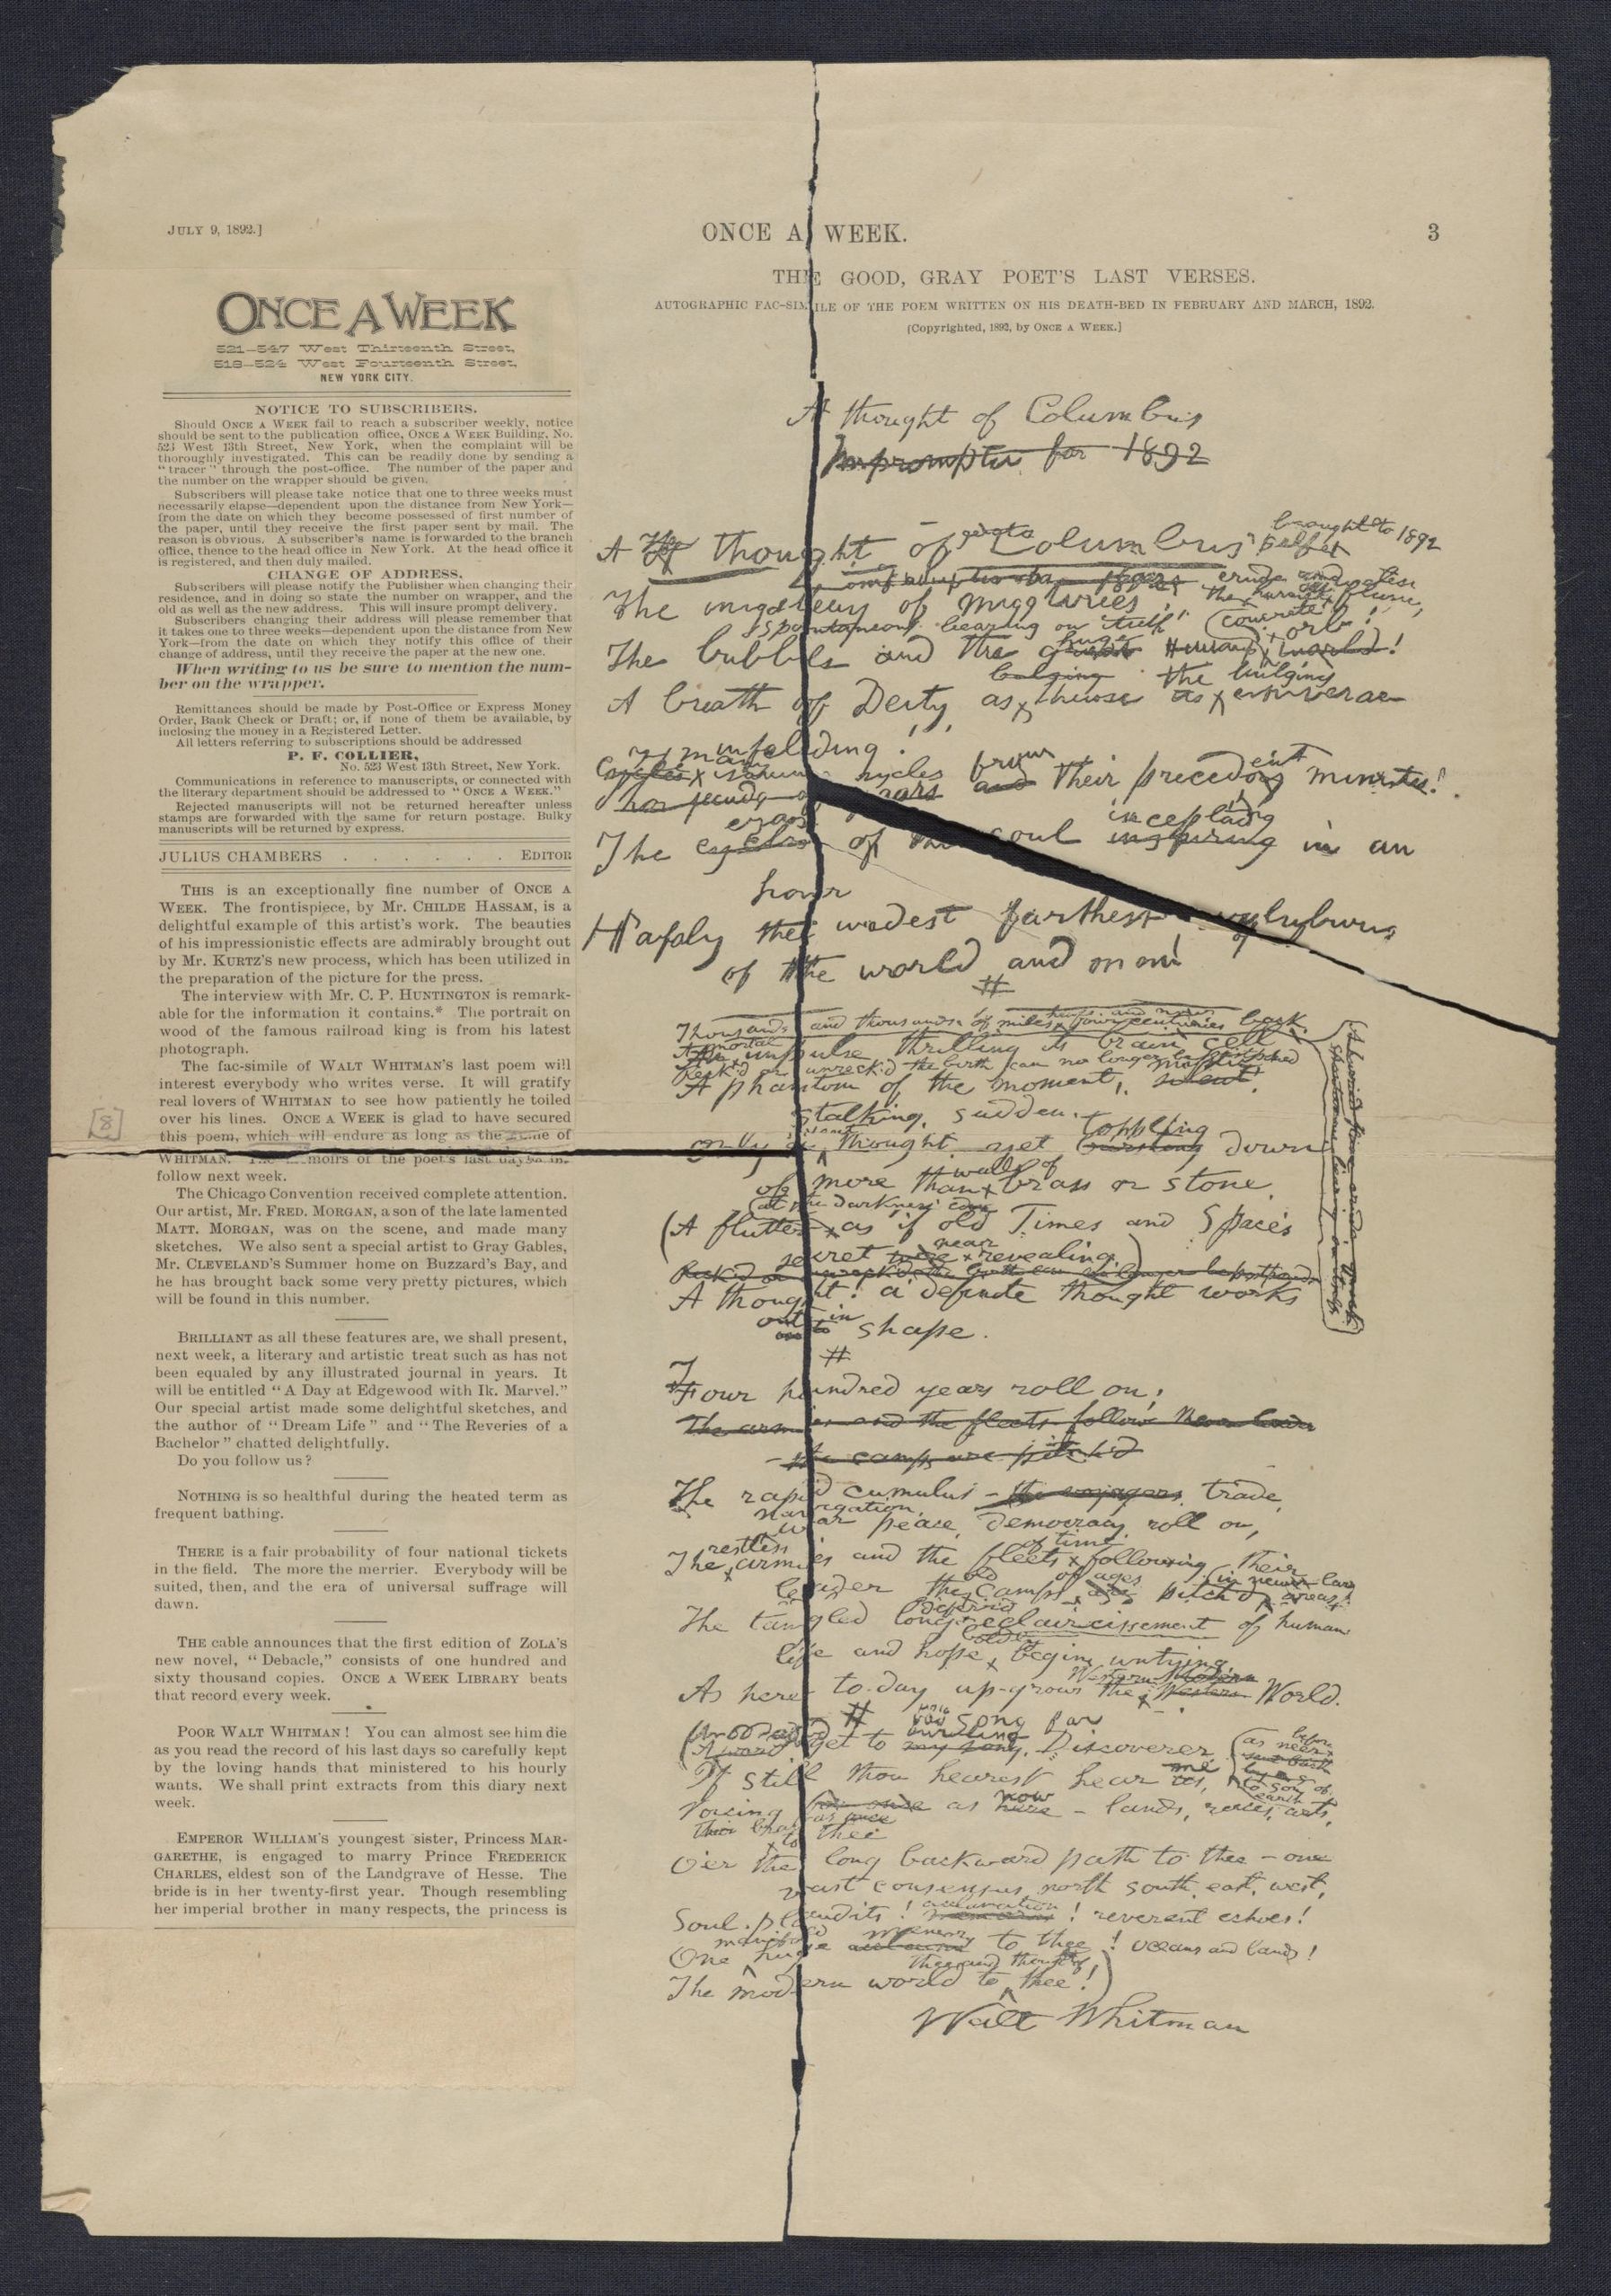 JULY 9, 1892.]
ONCE A WEEK.
3
ONCE A WEEK
521–547 West Thirteenth Street,
518–524 West Fourteenth Street,
NEW YORK CITY.
NOTICE TO SUBSCRIBERS.
Should ONCE A WEEK fail to reach a subscriber weekly, notice
should be sent to the publication office, ONCE A WEEK Building, No.
523 West 13th Street, New York, when the complaint will be
thoroughly investigated. This can be readily done by sending a
“tracer” through the post-office. The number of the paper and
the number on the wrapper should be given.
Subscribers will please take notice that one to three weeks must
necessarily elapse—dependent upon the distance from New York—
from the date on which they become possessed of first number of
the paper, until they receive the first paper sent by mail. The
reason is obvious. A subscriber's name is forwarded to the branch
office, thence to the head office in New York. At the head office it
is registered, and then duly mailed.
CHANGE OF ADDRESS.
Subscribers will please notify the Publisher when changing their
residence, and in doing so state the number on wrapper, and the
old as well as the new address. This will insure prompt delivery.
Subscribers changing their address will please remember that
it takes one to three weeks—dependent upon the distance from New
York—from the date on which they notify this office of their
change of address, until they receive the paper at the new one.
When writing to us be sure to mention the num-
ber on the wrapper.
Remittances should be made by Post-Office or Express Money
Order, Bank Check or Draft; or, if none of them be available, by
inclosing the money in a Registered Letter.
All letters referring to subscriptions should be addressed
P. F. COLLIER,
No. 523 West 13th Street, New York.
Communications in reference to manuscripts, or connected with
the literary department should be addressed to “ONCE A WEEK.”
Rejected manuscripts will not be returned hereafter unless
stamps are forwarded with the same for return postage. Bulky
manuscripts will be returned by express.
JULIUS CHAMBERS . . . . . . EDITOR
THIS is an exceptionally fine number of ONCE A
WEEK. The frontispiece, by Mr. CHILDE HASSAM, is a
delightful example of this artist's work. The beauties
of his impressionistic effects are admirably brought out
by Mr. KURTZ'S new process, which has been utilized in
the preparation of the picture for the press.
The interview with Mr. C. P. HUNTINGTON is remark-
able for the information it contains.* The portrait on
wood of the famous railroad king is from his latest
photograph.
The fac-simile of WALT WHITMAN'S last poem will
interest everybody who writes verse. It will gratify
real lovers of WHITMAN to see how patiently he toiled
over his lines. ONCE A WEEK is glad to have secured
this poem, which will endure as long as the name of
[8]
WHITMAN. The memoirs of the poet's last days
follow next week.
The Chicago Convention received complete attention.
Our artist, Mr. FRED. MORGAN, a son of the late lamented
MATT. MORGAN, was on the scene, and made many
sketches. We also sent a special artist to Gray Gables,
Mr. CLEVELAND'S Summer home on Buzzard's Bay, and
he has brought back some very pretty pictures, which
will be found in this number.
BRILLIANT as all these features are, we shall present,
next week, a literary and artistic treat such as has not
been equaled by any illustrated journal in years. It
will be entitled “A Day at Edgewood with Ik. Marvel.”
Our special artist made some delightful sketches, and
the author of “Dream Life” and “The Reveries of a
Bachelor” chatted delightfully.
Do you follow us?
NOTHING is so healthful during the heated term as
frequent bathing.
THERE is a fair probability of four national tickets
in the field. The more the merrier. Everybody will be
suited, then, and the era of universal suffrage will
dawn.
THE cable announces that the first edition of ZOLA'S
new novel, “Debacle,” consists of one hundred and
sixty thousand copies. ONCE A WEEK LIBRARY beats
that record every week.
POOR WALT WHITMAN! You can almost see him die
as you read the record of his last days so carefully kept
by the loving hands that ministered to his hourly
wants. We shall print extracts from this diary next
week.
EMPEROR WILLIAM'S youngest sister, Princess MAR-
GARETHE, is engaged to marry Prince FREDERICK
CHARLES, eldest son of the Landgrave of Hesse. The
bride is in her twenty-first year. Though resembling
her imperial brother in many respects, the princess is
THE GOOD, GRAY POET'S LAST VERSES.
AUTOGRAPHIC FAC-SIMILE OF THE POEM WRITTEN ON HIS DEATH-BED IN FEBRUARY AND MARCH, 1892.
[Copyrighted, 1892, by ONCE A WEEK.]
A thought of Columbus
Impromptu for 1892
brought to 1892
A thought of Columbus
crude and
The mystery of mysteries, the
spontaneous bearing on itself
The bubble and the huge concrete orb!
bulging the bulging
A breath of Deity, as universe
unfolding!
many
cycles from their precedent minutes!
eras incepting
The of the soul in an
hour
Haply the widest farthest
of the world and man
#
Thousands and thousands of miles four centuries back,
A mortal impulse thrilling its brain cell
Reck'd or unreck'd the birth can no longer be postponed
A phantom of the moment,
stalking, sudden,
toppling
only a silent thought yet down
walls of
of more than brass or stone
at the darkness'
(A flutter as if old Time's and Space's
near
secret revealing.)
A thought! a definite thought works
out in
shape.
#
Four hundred years roll on,
The armies and the fleets follow
the camps are pitch'd
The rapid cumulus – trade,
navigation
war peace, democracy roll on,
restless of time
The armies and the fleets following their
old of ages in newer
leader the camps pitch'd areas
deferred
The tangled long eclaircissement of human
life and hopes begins untying,
Western
As here to-day up-grows the Western World.
#
one song far
yet to my song, Discoverer
as ne'er before
If still thou hearest hear me,
to son of earth
now
Voicing as – lands, races, arts,
to thee
O'er the long backward path to thee – one
vast consensus north south, east, west,
acclamation
Soul plaudits! ! reverent echoes!
manifold memory
One huge to thee! oceans and lands!
thee and thought of
The modern world to thee!)
Walt Whitman